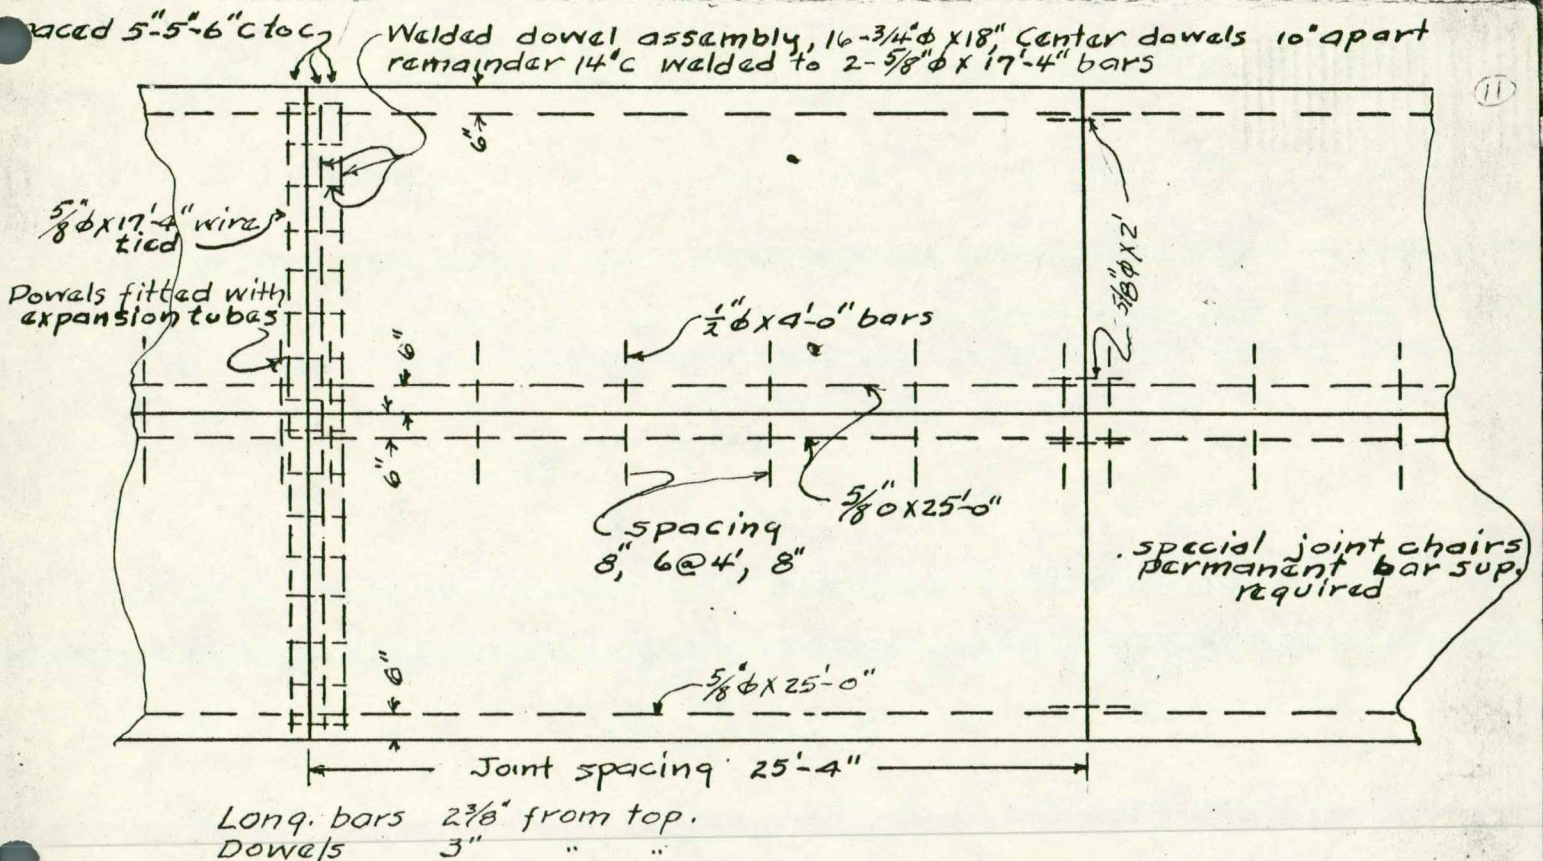 aced 5"-5"-6" c to c
Welded dowel assembly, 16-3/4"ϕ x 18", Center dowels 10" apart
remainder 14"c welded to 2-5/8"ϕ x 17'-4" bars
11
6"
5/8"ϕ x 17'-4" wire
tied
Dowels fitted with
expansion tubes
1/2"ϕ x 4'-0" bars
2-5/8"ϕ x 2'
6"
6"
5/8"ϕ x 25'-0"
spacing
8", 6@4', 8"
special joint chairs
permanent bar sup.
required
6"
5/8"ϕ x 25'-0"
Joint spacing 25'-4"
Long. bars 2 3/8" from top.
Dowels 3" " "